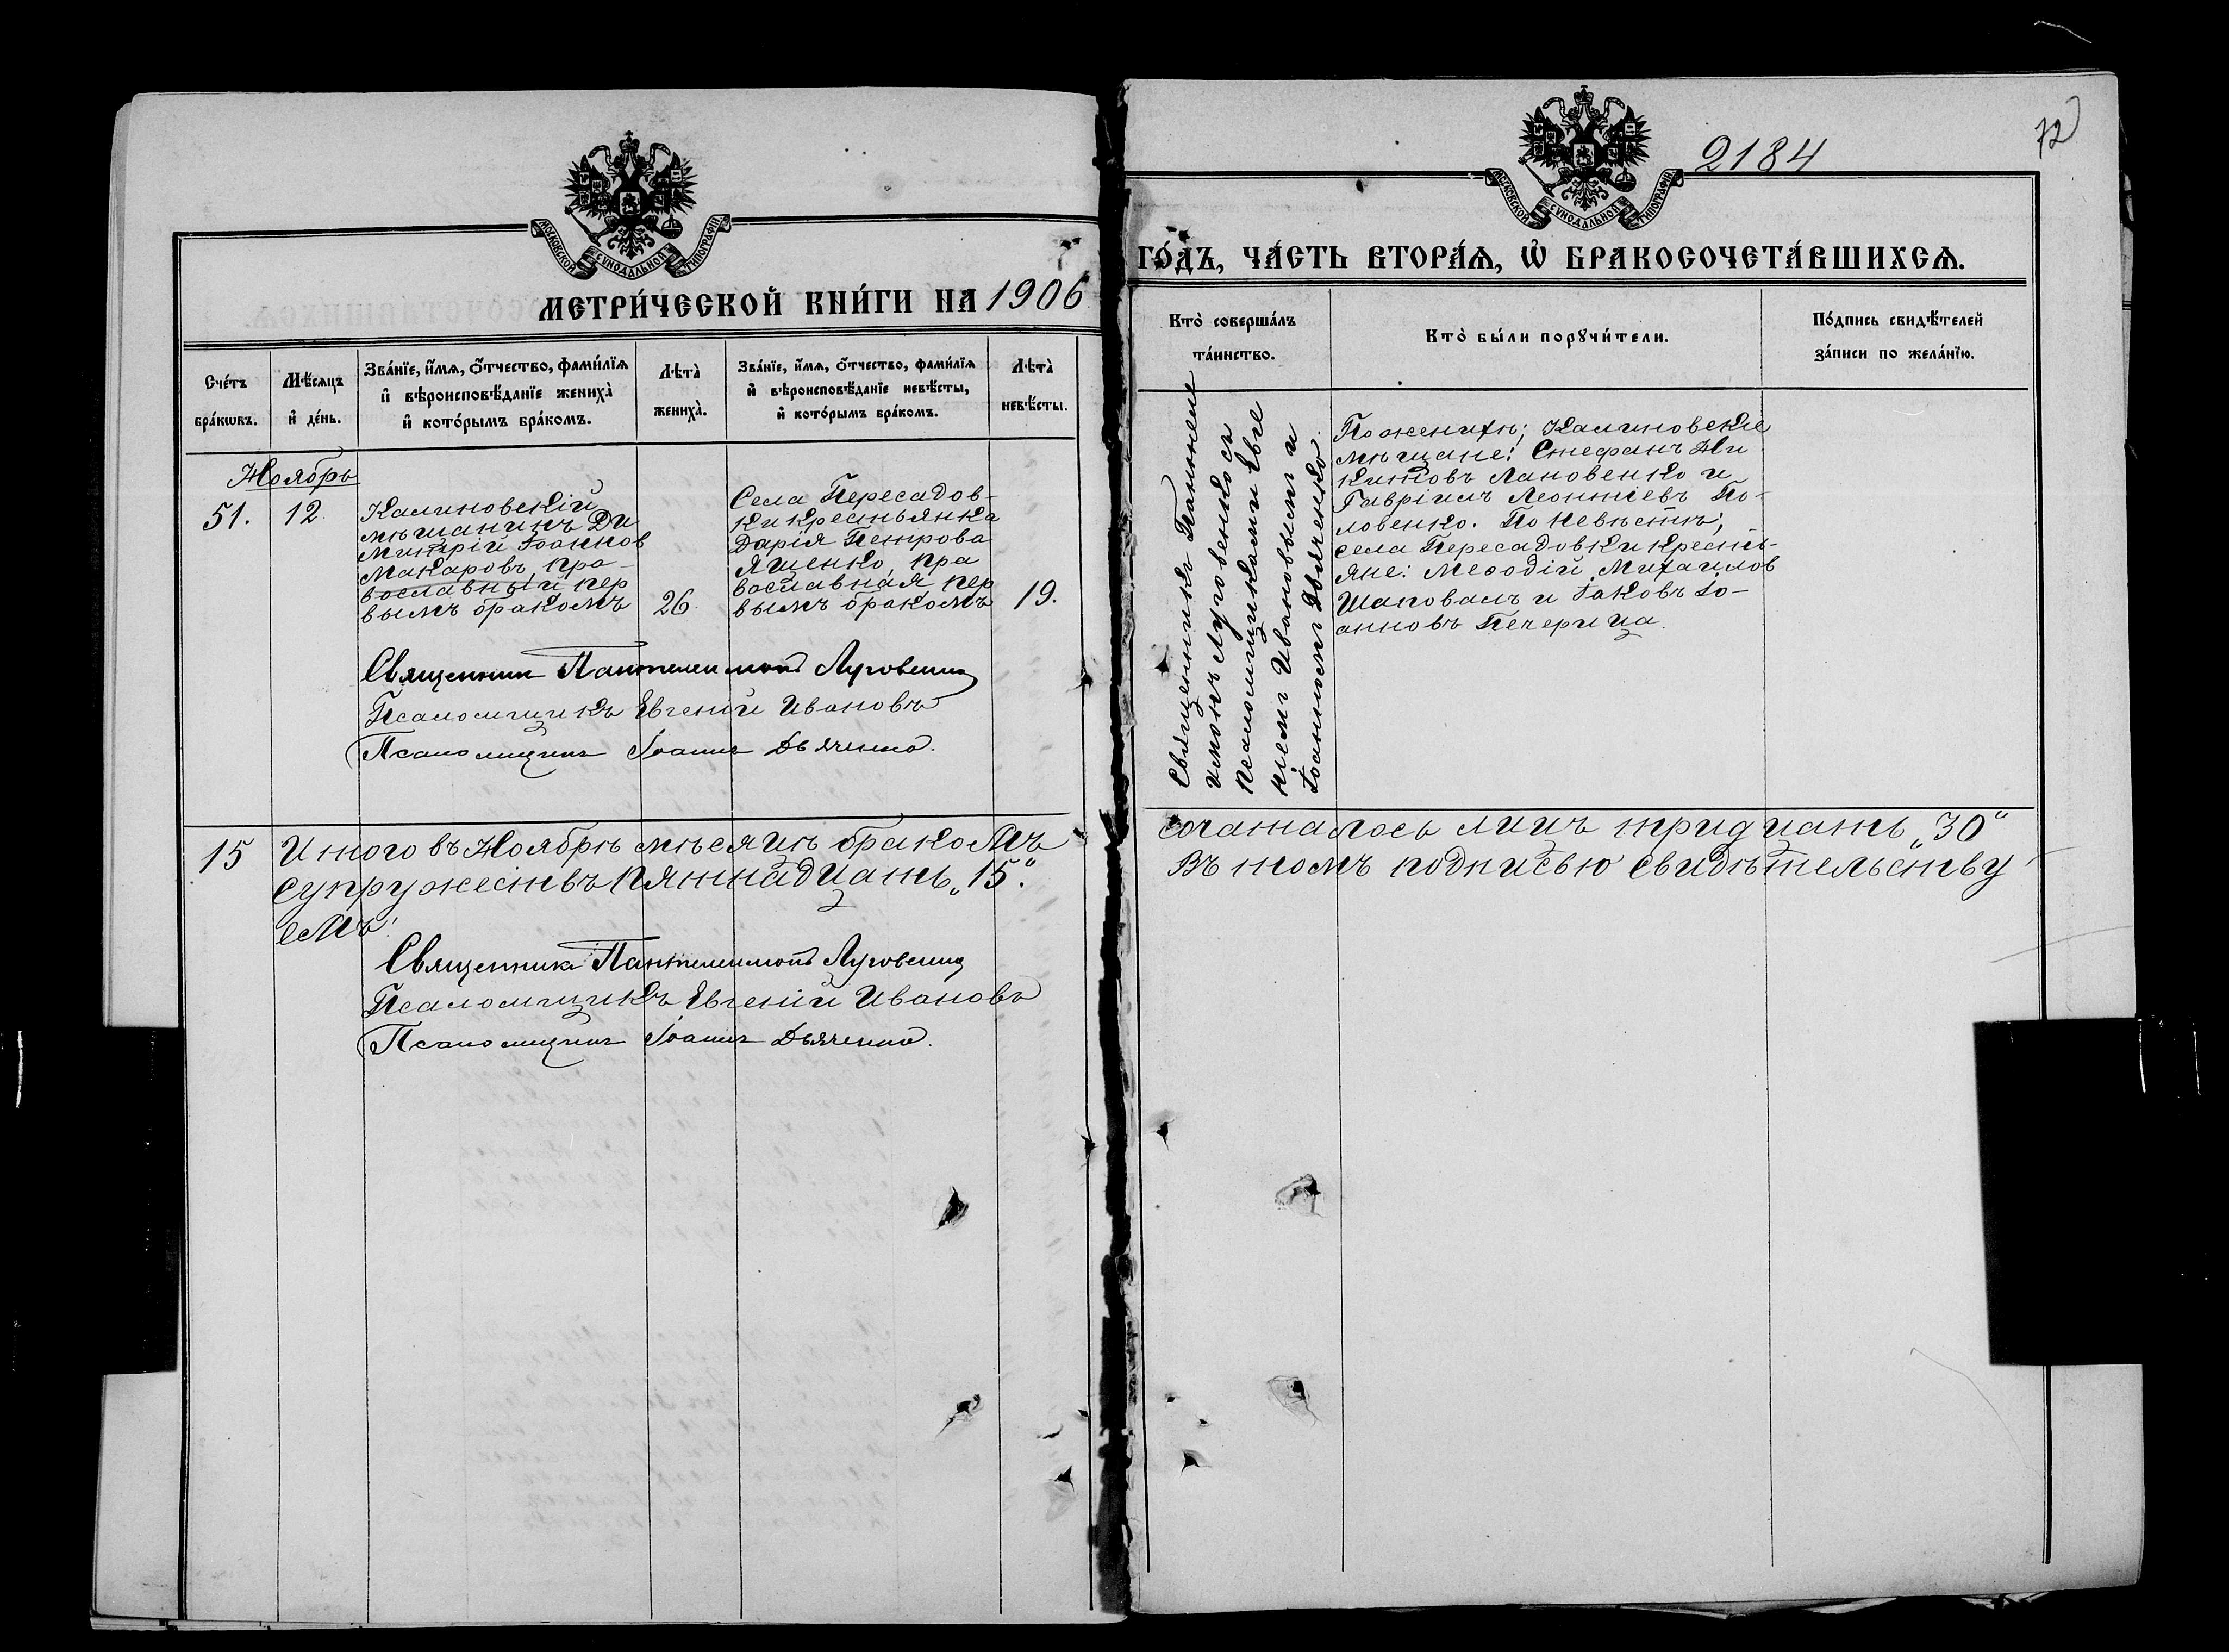 2184
72
МОСКОВСКОЙ СѴНОДАЛЬНОЙ ТИПОГРАФІИ
МЕТРИ́ЧЕСКОЙ КНИ́ГИ НА 1906
Сче́тъ бра́кѡвъ.
Мѣ́сяцъ и҆ де́нь.
Зва́нїе, и҆́мѧ, ѻ҆́тчество, фами́лїѧ
и҆ вѣроисповѣ́данїе жениха̀
и҆ кото́рымъ бра́комъ.
Лѣ́та̀ жениха̀.
Зва́нїе, и҆́мѧ, ѻ҆́тчество, фами́лїѧ
и҆ вѣроисповѣ́данїе невѣ́сты,
и҆ кото́рымъ бра́комъ.
Лѣ́та̀ невѣ́сты.
Ноябрь
51.
12.
Калиновскій
мѣщанинъ Ди
митрій Іоаннов
Макаровъ, пра-
вославный пер
вымъ бракомъ
26.
Села Пересадов-
ки крестьянка
Дарія Петрова
Яценко, пра
вославная, пер
вымъ бракомъ
19.
Священникъ Пантелеимонъ Луговенко
Псаломщикъ Евгеній Ивановъ
Псаломщикъ Іоаннъ Дьяченко.
15
Итого въ Ноябрѣ мѣсяцѣ бракомъ
супружествъ пятнадцать „15“.
емъ.
Священникъ Пантелеимонъ Луговенко
Псаломщикъ Евгеній Ивановъ
Псаломщикъ Іоаннъ Дьяченко.
МОСКОВСКОЙ СѴНОДАЛЬНОЙ ТИПОГРАФІИ
ГО́ДЪ, ЧА́СТЬ ВТОРА́Ѧ, Ѽ БРАКОСОЧЕТА́ВШИХСѦ.
Кто̀ соверша́лъ
та́инство.
Кто̀ бы́ли порꙋчи́тели.
По́дпись свидѣ́телей
за́писи по жела́нїю.
Священникъ Пантеле
имонъ Луговенко съ
псаломщиками Евге
ніемъ Ивановымъ и
Іоанномъ Дьяченко.
По женихѣ; Калиновскіе
мѣщане: Стефанъ Ни
китовъ Лановенко и
Гавріилъ Леонтіевъ По-
ловенко. По невѣстѣ;
села Пересадовки кресть-
яне: Меѳодій Михаилов
Шаповалъ и Іаковъ Іо-
анновъ Печерица.
сочаталось лицъ тридцать „30“
Въ томъ подписью свидѣтельству